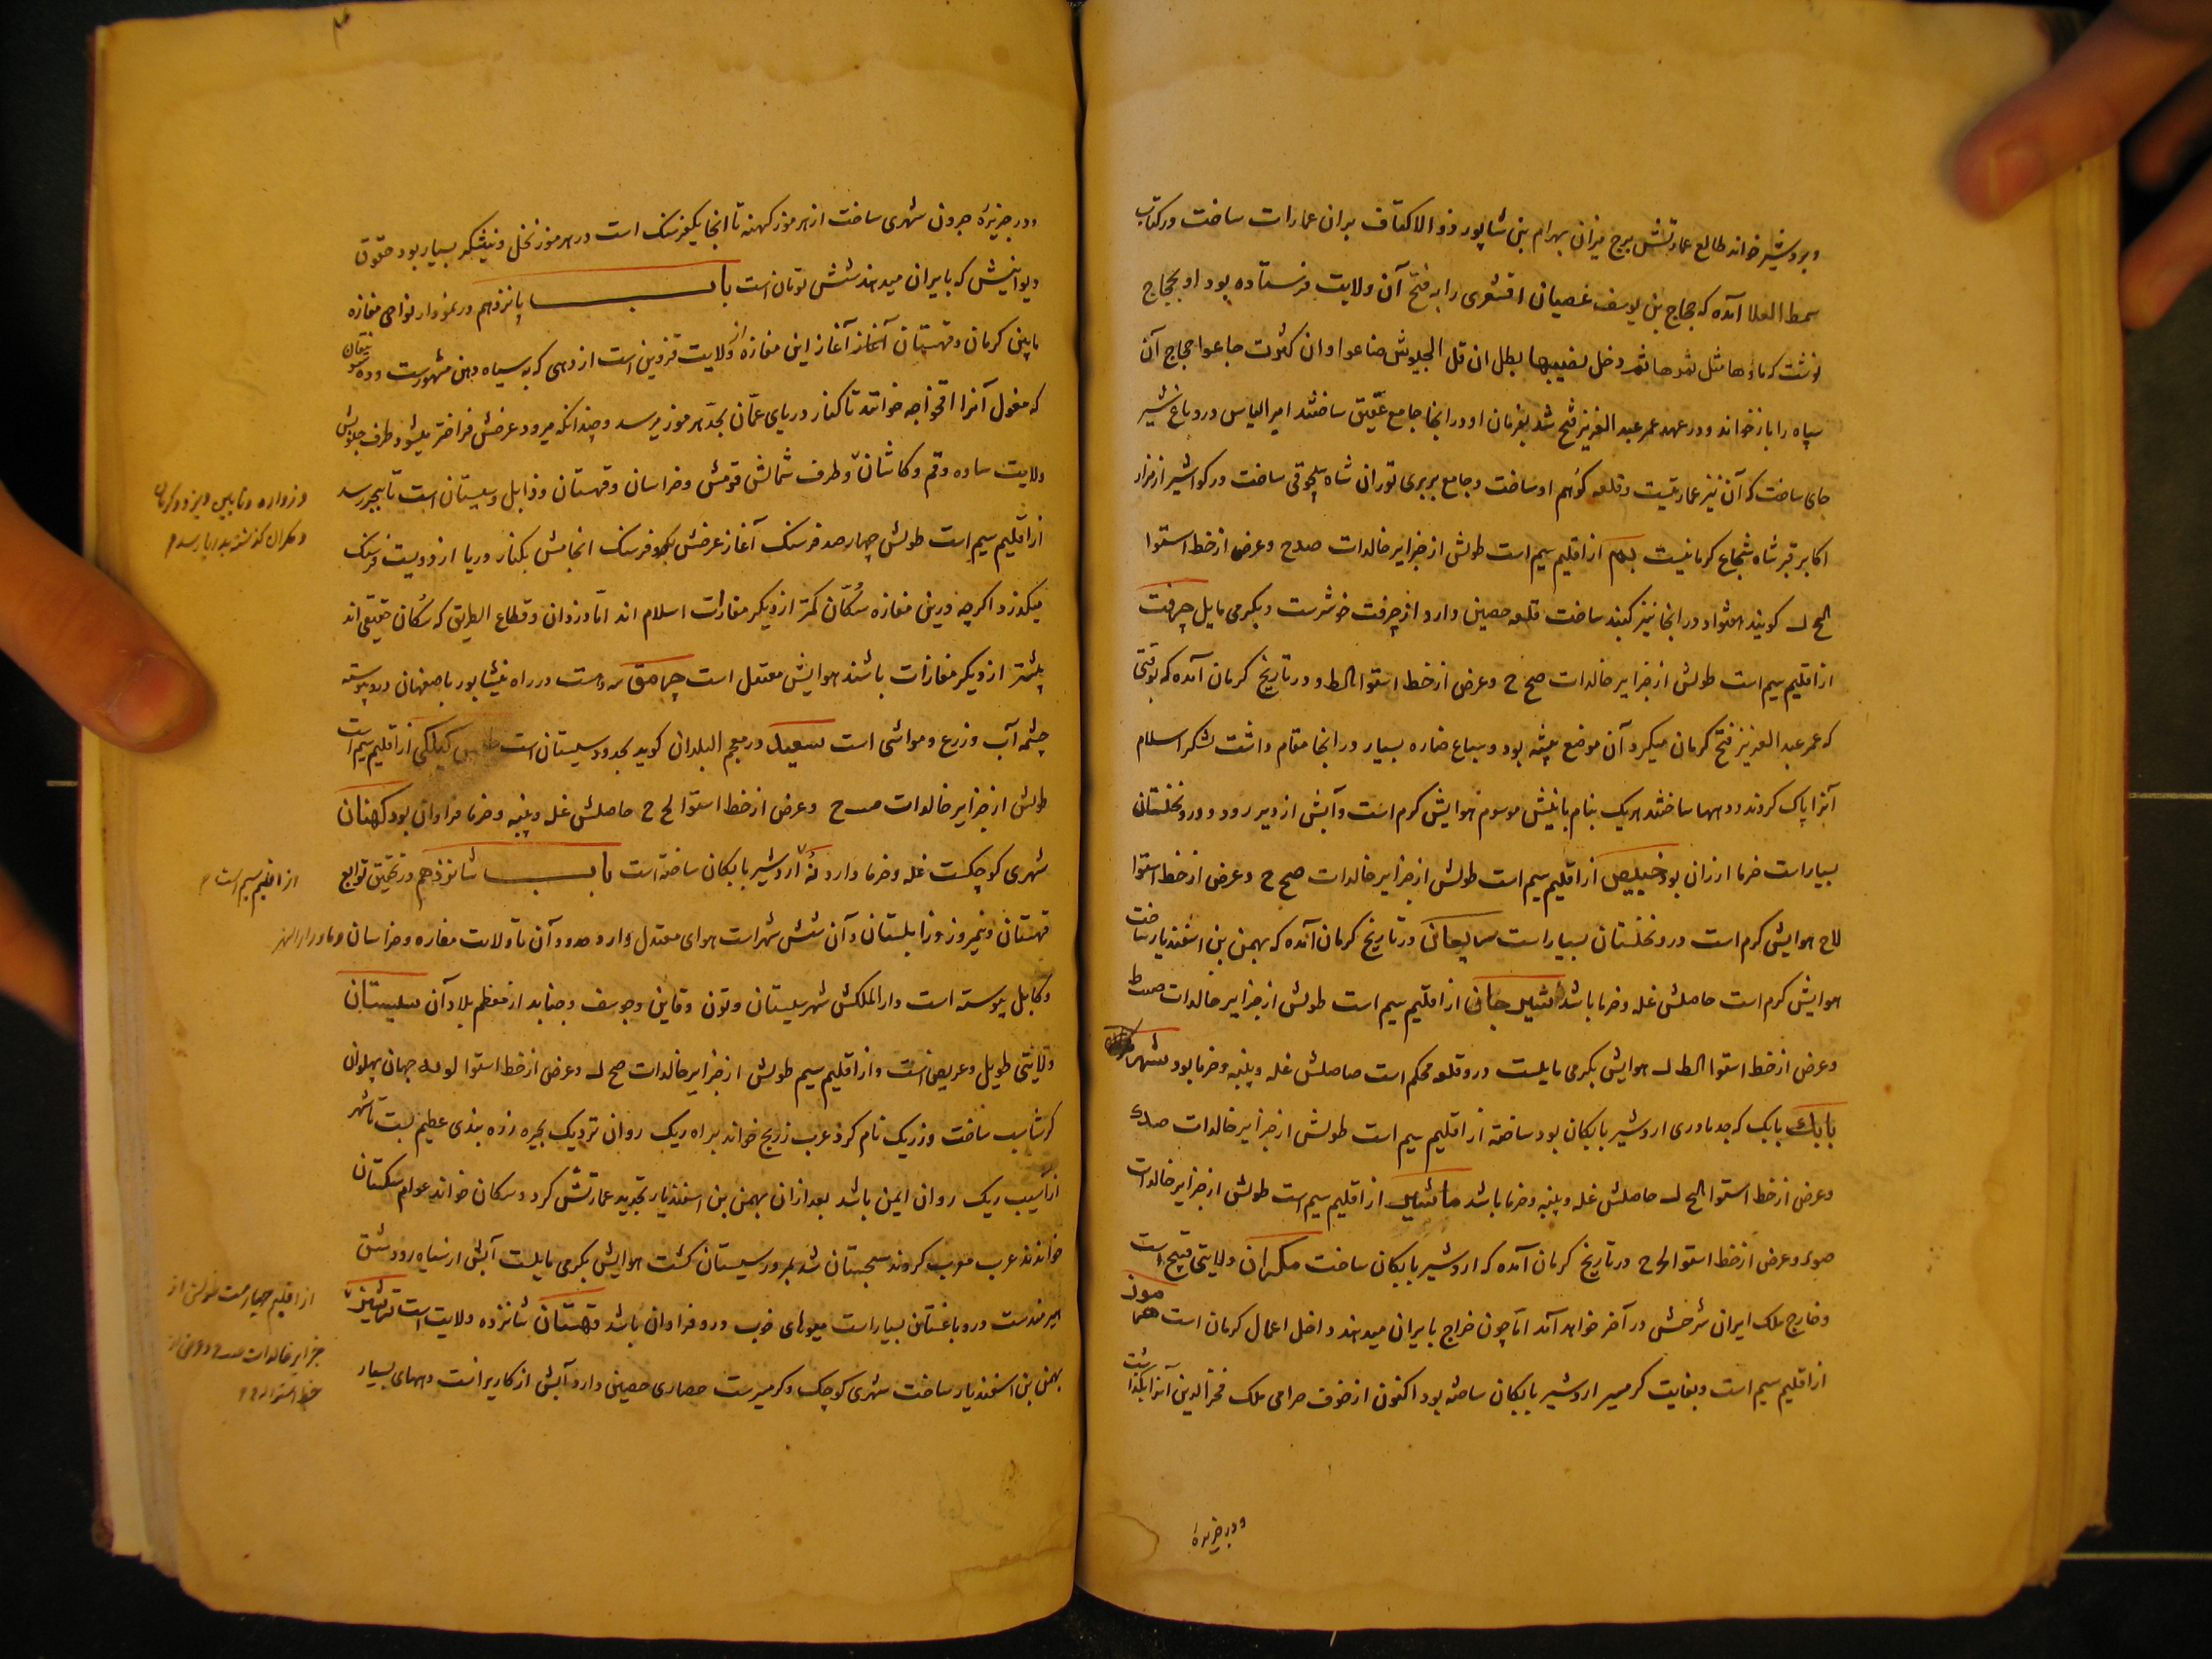 و بردشیر خواند طالع عمارتش برج میزان بهرام بن شاپور ذو الاکتاف بران عمارات ساخت و در کتاب
سمط العلا آمده که حجاج بن یوسف غضبان اقشعری را به فتح آن ولایت فرستاده بود او بحجاج
نوشت که ماؤها ثمرها دخل لصیبها بطل ان قل الجیوش ضاعوا و ان کثرت جاعوا حجاج آن
سپاه را باز خواند و در عهد عمر عبد العزیز فتح شد بفرمان او در انجا جامع عتیق ساختند امیر الیاس درو باغ شیر
جای ساخت که آن نیز عمارتیست و قلعه کوهم او ساخت و جامع بربری توران شاه سلجوقی ساخت در کواشیر از مزار
اکابر قبر شاه شجاع کرمانیست بم از اقلیم سیم است طولش از جزایر خالدات صدح و عرض از خط استوا
الح ل کویند هفتواد در انجا نیز کنبد ساخت قلعه حصین دارد از جرفت خوشترست و بکرمی مایل جرفت
از اقلیم سیم است طولش از جزایر خالدات صح ح و عرض از خط استوا الط و در تاریخ کرمان آمده که بوقتی
که عمر عبد العزیز فتح کرمان میکرد آن موضع بیشه بود و سباع ضاره بسیار در انجا مقام داشت لشکر اسلام
آنرا پاک کردند و دهها ساختند هریک بنام بانیش موسوم هوایش کرم است و آبش از دیر رود و درو نخلستان
بسیار است خرما ارزان بود خبیص از اقلیم سیم است طولش از جزایر خالدات صح ح و عرض از خط استوا
لاح هوایش کرم است درو نخلستان بسیار است در تاریخ کرمان آمده که بهمن بن اسفندیار ساخت
هوایش کرم است حاصلش غله و خرما باشد از اقلیم سیم است طولش از جزایر خالدات صمط
و عرض از خط استوا الط ل هوایش بکرمی مایلست درو قلعه محکم است حاصلش غله و پنبه و خرما بود شهر
بابک بابک که جد مادری اردشیر بابکان بود ساخته از اقلیم سیم است طولش از جزایر خالدات صدک
و عرض از خط استوا الح ل حاصلش غله و پنبه و خرما باشد ماشیز از اقلیم سیم است طولش از جزایر خالدات
صود و عرض از خط استوا لح ح در تاریخ کرمان آمده که اردشیر بابکان ساخت مکران ولایتی قبیح است
و خارج ملک ایران شرحش در آخر خواهد آمد اما چون خراج بایران میدهند داخل اعمال کرمان است هرموز
از اقلیم سیم است و بغایت کرمسیر اردشیر بابکان ساخته بود اکنون از خوف حرامی ملک فخر الدین آنرا بگذاشت
و در جزیره
و در جزیره جرون شهری ساخت از هرموز کهنه تا انجا یکفرسنک است در هرموز نخل و نیشکر بسیار بود حقوق
دیوانیش که بایران میدهند شش تومان است باب پانزدهم در نمودار نواحی مفازه
مابین کرمان و قهستان آغاز این مفازه از ولایت قزوین است از دهی که به سیاه دهن مشهورست و ده
که مغول آنرا اقخواجه خوانند تا کنار دریای عمان بحد هرموز میرسد و چندانکه میرود عرضش فراختر میشود طرف جنوبش
ولایت ساوه و قم و کاشان و طرف شمالش قومش و خراسان و قهستان و زابل و سیستان است تا ببحر رسد
و زواره و نایین و یزد و کرمان
و مکران کذشته بدریا رسد
از اقلیم سیم است طولش چهار صد فرسنک آغاز عرضش یکدو فرسنک انجامش بکنار دریا از دویست فرسنک
میکذرد اکرچه درین مفازه سکان کمتر از دیکر مفازات اسلام اند اما دزدان و قطاع الطریق که سکان حقیقی اند
بیشتر از دیکر مفازات باشند هوایش معتدل است جرمق سه دهست در راه نیشابور باصفهان درو پیوسته
چشمه آب و زرع و مواشی است سعید در معجم البلدان کوید بحدود سیستان است طبس کیلکی از اقلیم سیم است
طولش از جزایر خالدات و عرض از خط استوا لح ح حاصلش غله و پنبه و خرما فراوان بود کهنان
شهری کوچکست غله و خرما دارد اردشیر بابکان ساخته است باب شانزدهم در تحقیق توابع
از اقلیم سیم است
قهستان و نیمروز و زابلستان و آن شش شهر است هوای معتدل دارد حدود آن تا ولایت مفازه و خراسان و ماوراء النهر
و کابل پیوسته است دار الملکش شهر سیستان و تون و قاین و خوسف و جنابد از معظم بلاد آن سیستان
ولایتی طویل و عریض است و از اقلیم سیم طولش از جزایر خالدات صح ل و عرض از خط استوا جهان پهلوان
کرشاسب ساخت و زریک نام کرد عرب زرنج خواند بر راه ریک روان نزدیک بحیره زره بندی عظیم بست تا شهر
از آسیب ریک روان ایمن باشد بعد ازان بهمن بن اسفندیار تجدید عمارتش کرد و سکان خواند عوام سکستان
خواندند عرب معرب کردند سجستان شد بمرور سیستان کشت هوایش بکرمی مایلست آبش از سیاه رود شق
هیرمندست درو باغستان بسیار است میوهای خوب درو فراوان باشد قهستان شانزده ولایت است ترشیز
از اقلیم چهارمست طولش از
جزایر خالدات و عرض از
خط استوا
بهمن بن اسفندیار ساخت شهری کوچک و کرمسیرست حصاری حصین دارد آبش از کاریز است دههای بسیار